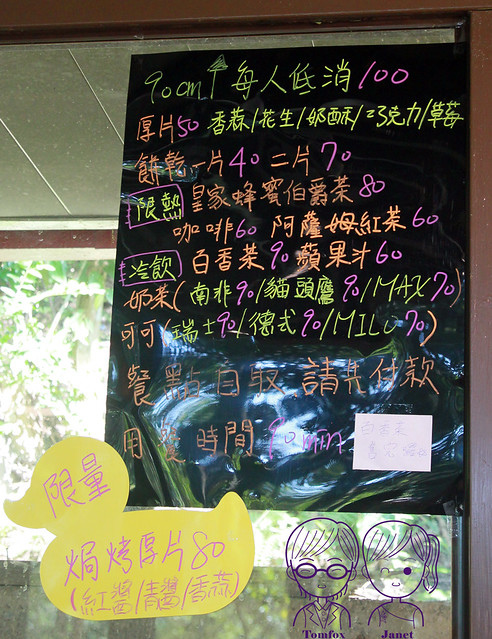 90cm↑每人低消100
厚片50 香蒜/花生/奶酥/巧克力/草莓
餅乾一片40 二片70
限熱 皇家蜂蜜伯爵茶80
咖啡60 阿薩姆紅茶60
冷飲 百香茶90 蘋果汁60
奶茶(南非90/貓頭鷹90/MAX70)
可可(瑞士90/德式90/MILO70)
餐點自取.請先付款
用餐時間90min
限量
焗烤厚片80
(紅醬/青醬/香蒜)
Tomfox Janet